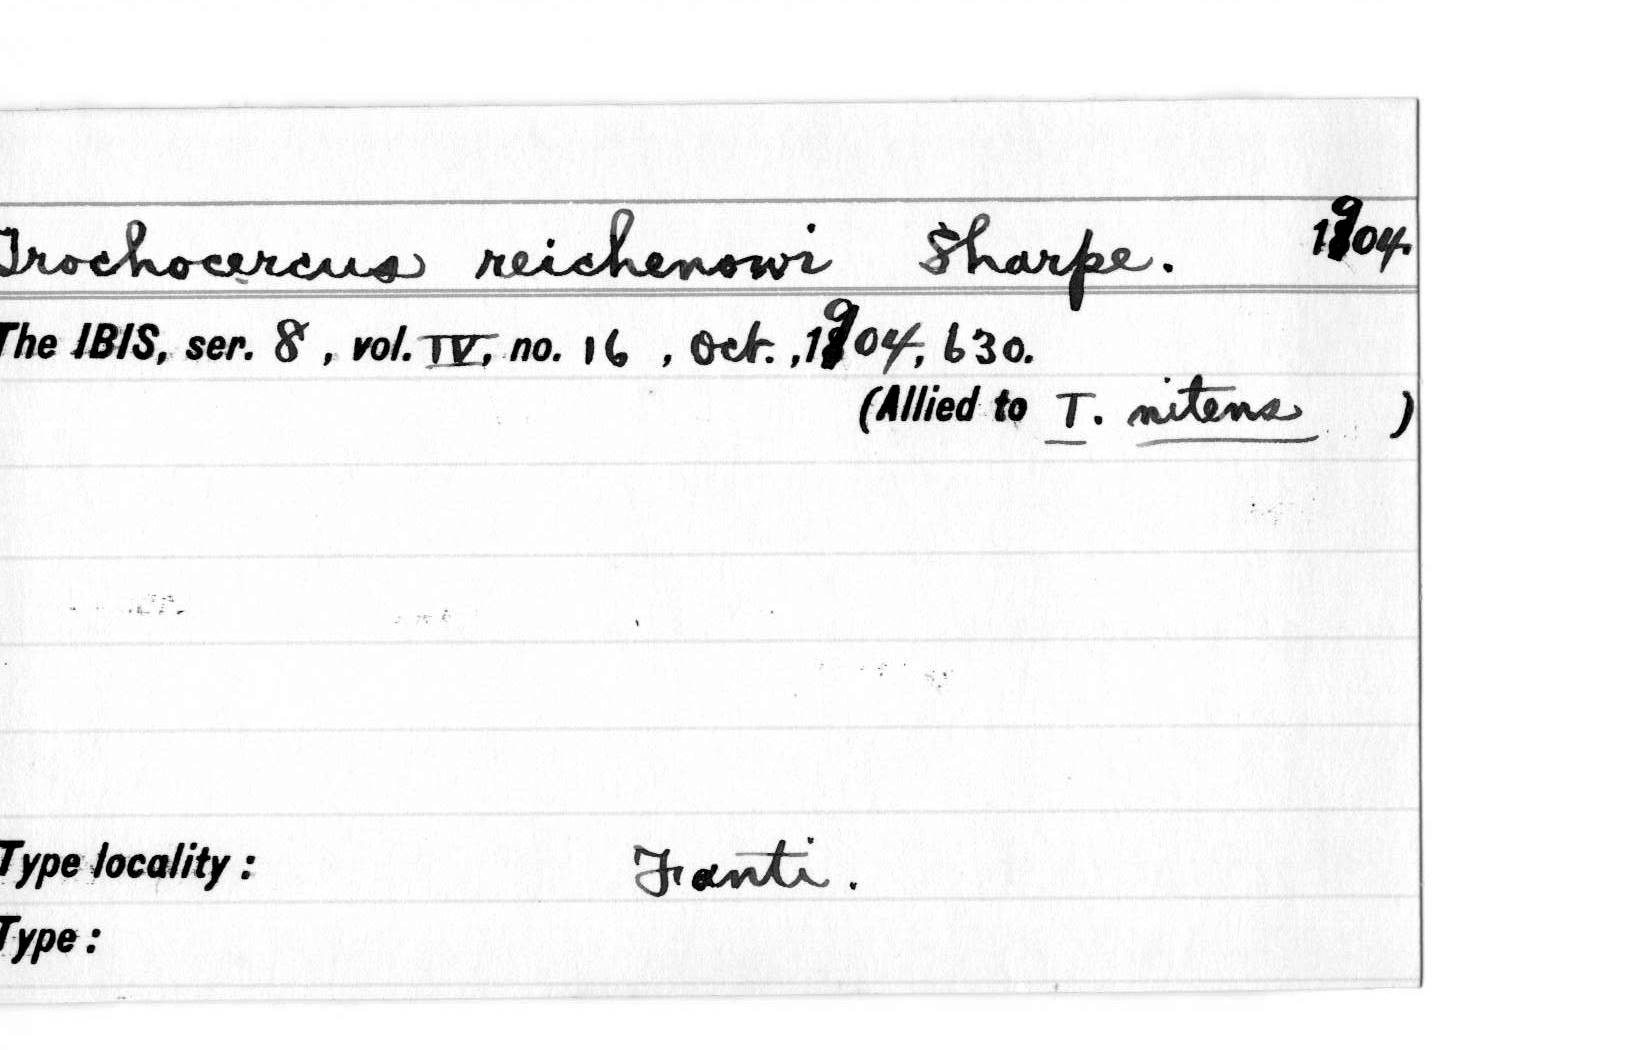 Trochocercus reichenowi Sharpe. 1904.
The IBIS, ser. 8, vol. IV, no. 16, Oct., 1904, 630.
(Allied to T. nitens )
Type locality: Fanti.
Type: